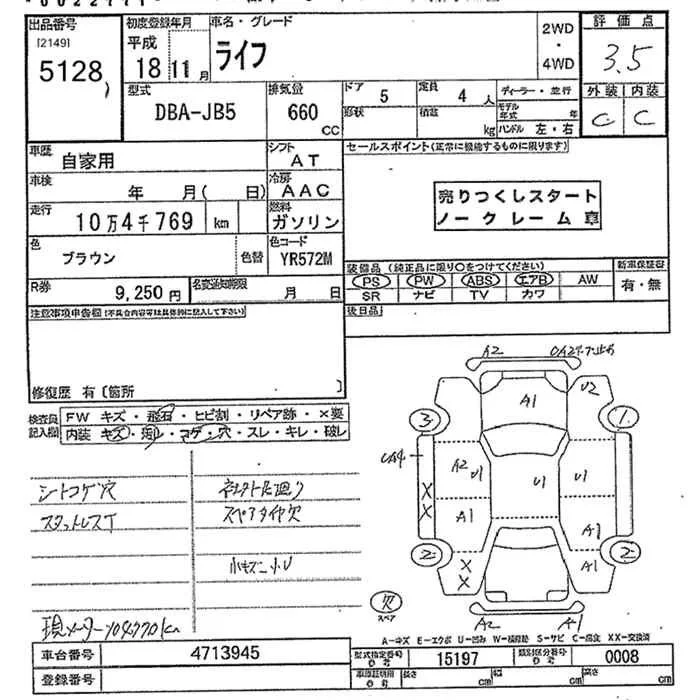 出品番号 初度登録年月 車名・グレード 2WD・4WD 評価点
[2149] 平成 ライフ 3.5
5128 18 11月
外装 内装
C C
型式 排気量 ドア 定員 ディーラー・並行
DBA-JB5 660 CC 5 4 人 モデル年式 年
形状 積載 kg ハンドル 左・右
車歴 自家用 シフト AT セールスポイント(正常に機能するものに限ります)
車検 年 月(日) 冷房 AAC
売りつくしスタート
ノークレーム車
走行 10万4千769 km 燃料 ガソリン
色 ブラウン 色替 色コード YR572M
装備品(純正品に限り○をつけてください) 新車保証書
PS PW ABS エアB AW 有・無
SR ナビ TV カワ
R券 9,250円 名変通知期限 月 日
後日品
注意事項申告欄(不具合内容等は具体的に記入して下さい)
修復歴 有〔箇所 〕
検査員記入欄 FW キズ・飛石・ヒビ割・リペア跡・×要
内装 キズ・汚レ・コゲ・穴・スレ・キレ・破レ
シートコゲ穴
スタットレスT
スペアタイヤ欠
小キズ 小U
現メーター104770km
A2
A1
U2
3
1
A2
U1
U1
U1
X
X
A1
A1
2
2
X
X
A1
欠
スペア
A2
A1
A-キズ E-エクボ U-凹み W-補修跡 S-サビ C-腐食 XX-交換済
車台番号 4713945
型式指定番号 参考 15197 類別区分番号 参考 0008
登録番号
車庫証明用 参考 長さ cm 幅 cm 高さ cm